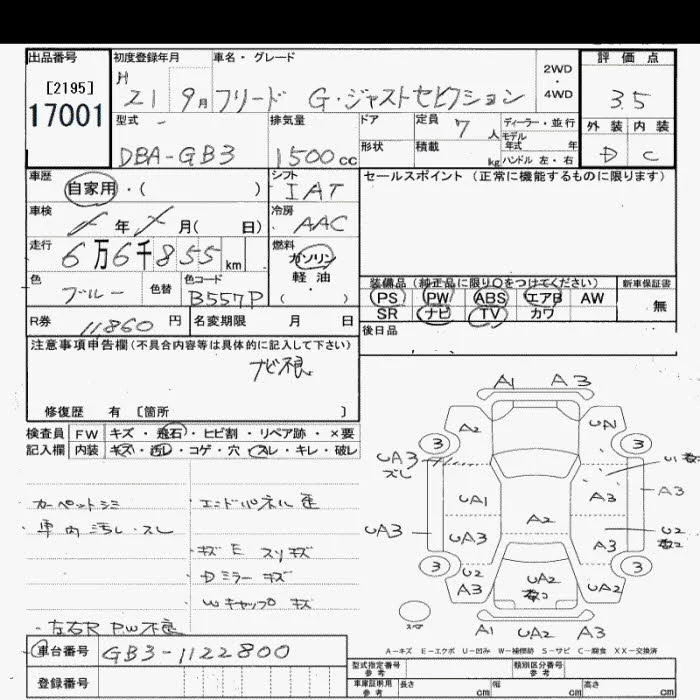 出品番号 初度登録年月 車名・グレード 2WD 評価点
[2195] H ・
17001 21 9月 フリード G・ジャストセレクション 4WD 3.5
型式 排気量 ドア 定員 7 人 ディーラー・並行 外装 内装
モデル
DBA-GB3 1500cc 形状 積載 kg 年式 年 D C
ハンドル 左・右
車歴 シフト セールスポイント (正常に機能するものに限ります)
自家用・( ) IAT
車検 冷房
年 月( 日) AAC
走行 燃料
6万6千855km ガソリン
色 色替 色コード 軽油
ブルー B557P (・) 装備品 (純正品に限り○をつけてください) 新車保証書
PS PW ABS エアB AW 無
R券 11860円 名変期限 月 日 SR ナビ TV カワ
注意事項申告欄(不具合内容等は具体的に記入して下さい) 後日品
ナビ不良
修復歴 有 [箇所 ]
検査員 FW キズ・飛石・ヒビ割・リペア跡・×要
記入欄 内装 キズ・汚れ・コゲ・穴・スレ・キレ・破レ
カーペットシミ エンドパネル歪
・車内汚れ・スレ
・キズ E スリキズ
・Dミラーキズ
・Wキャップ キズ
・左右R PW不良
A1 A3
A2 UZ
3 3
UA3 ズレ U1
UA1 A3 A3
A2
UA3 UA3 A3 U2
3 3
U2 A3 UA2 UA2
A1 UA2 A3
スペア
A-キズ E-エクボ U-凹み W-補修跡 S-サビ C-腐食 XX-交換済
車台番号 GB3-1122800
型式指定番号 参考 類別区分番号 参考
登録番号 車庫証明用 参考 長さ cm 幅 cm 高さ cm